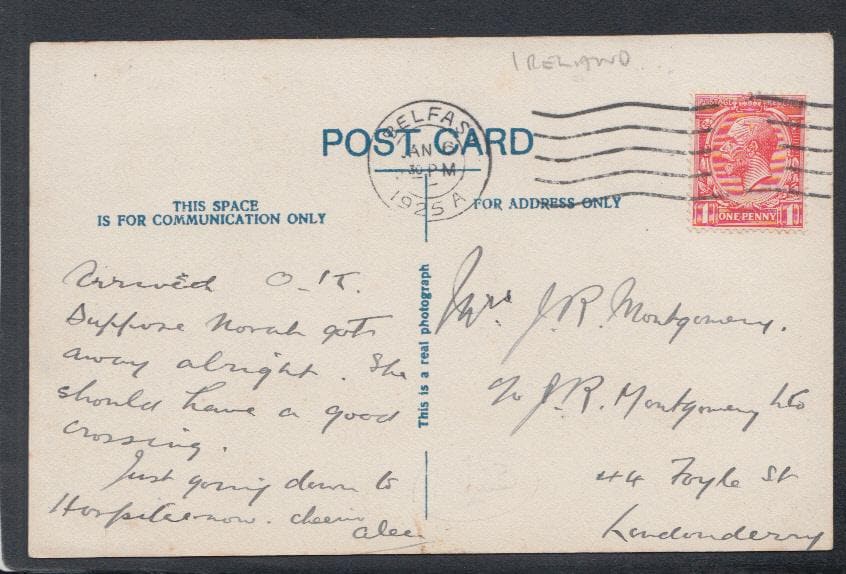 IRELAND
POST CARD
BELFAST
JAN 6
30 PM
1925 A
POSTAGE REVENUE
1D ONE PENNY 1D
THIS SPACE
IS FOR COMMUNICATION ONLY
FOR ADDRESS ONLY
This is a real photograph
Arrived O-K.
Suppose Norah got
away alright. She
should have a good
crossing.
Just going down to
Hospital now. cheerio
Alec
Mrs J.R. Montgomery.
c/o J.R. Montgomery Ltd
44 Foyle St
Londonderry